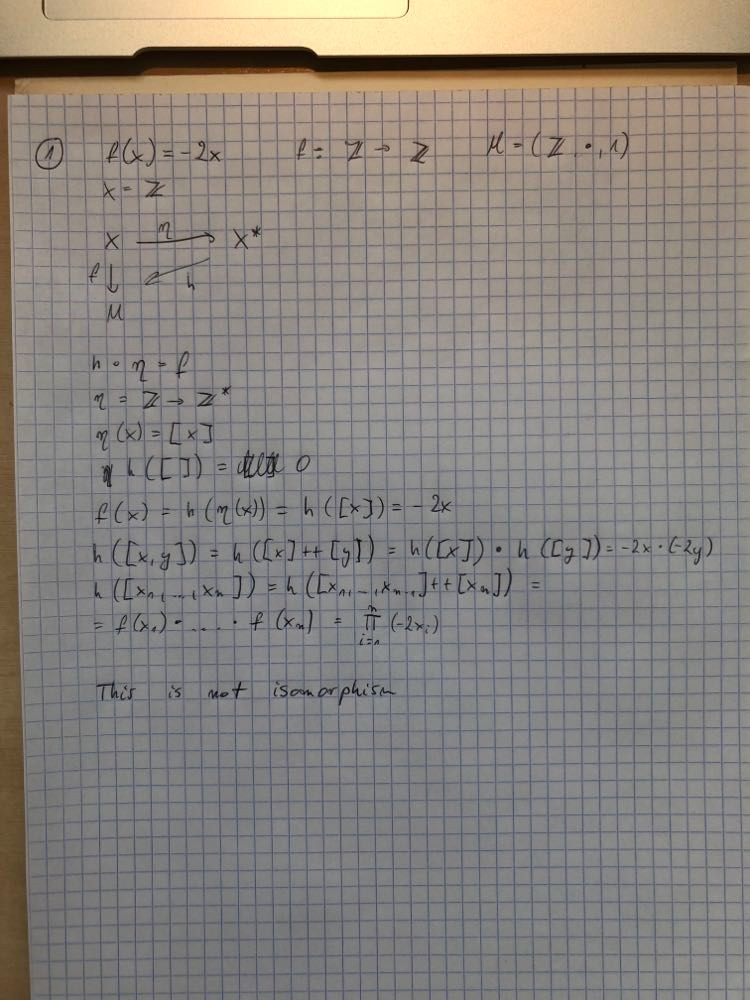 ① f(x) = -2x f: ℤ → ℤ M = (ℤ, ·, 1)
X = ℤ
X η→ X*
f ↓ ↙ h
M
h ∘ η = f
η = ℤ → ℤ*
η(x) = [x]
h([]) = 0
f(x) = h(η(x)) = h([x]) = -2x
h([x,y]) = h([x]++[y]) = h([x]) · h([y]) = -2x·(-2y)
h([x₁,...,xₙ]) = h([x₁,...,xₙ₋₁]++[xₙ]) =
= f(x₁)· .... · f(xₙ) = ∏ⁿᵢ₌₁ (-2xᵢ)
This is not isomorphism